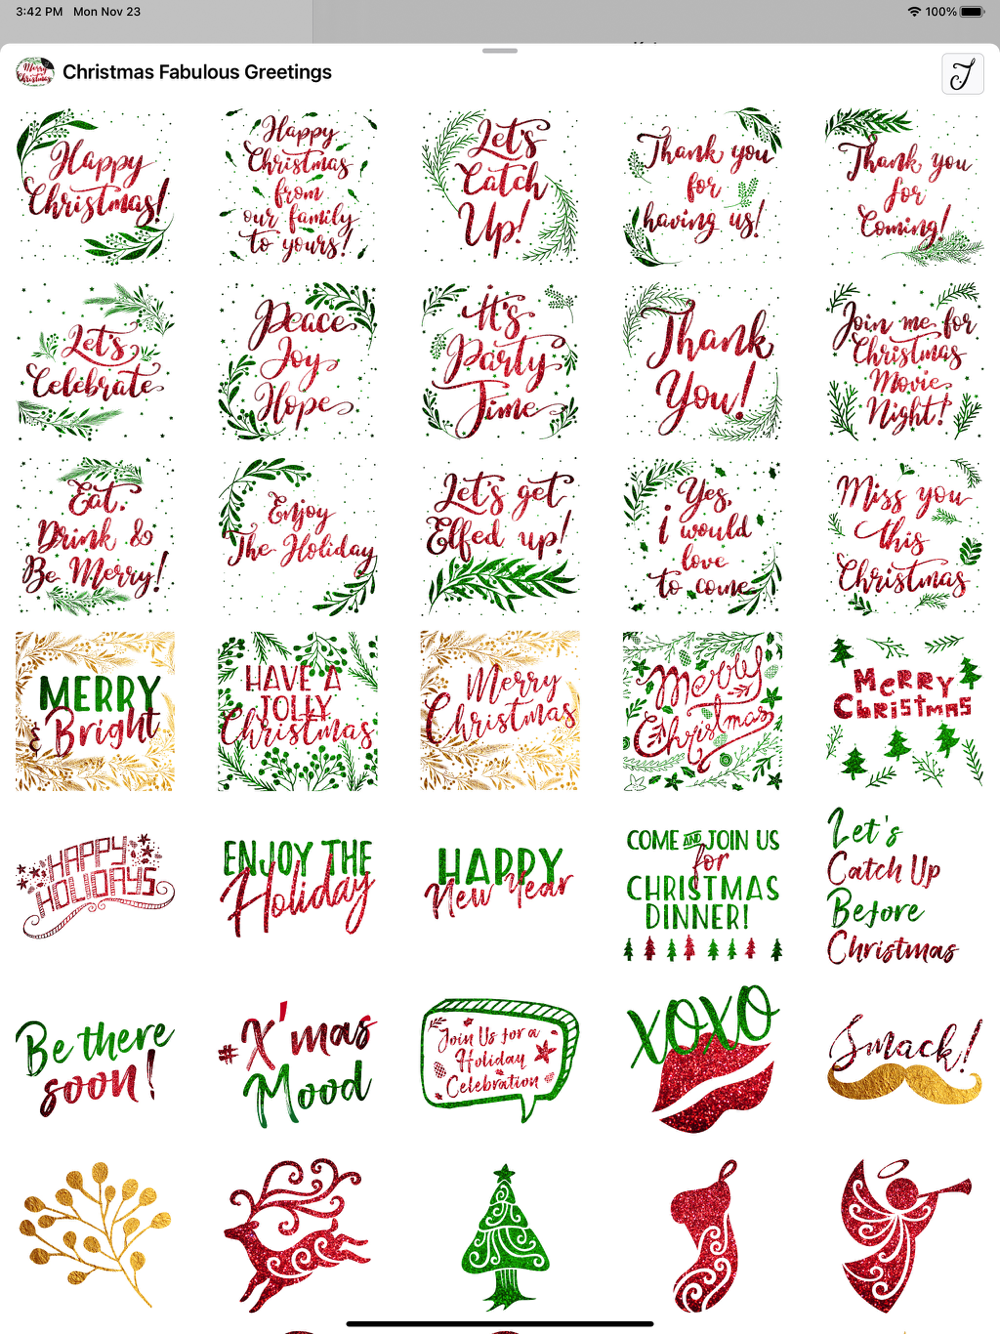 3:42 PM Mon Nov 23
100%
Christmas Fabulous Greetings
J
Happy
Christmas!
Happy
Christmas
from
our family
to yours!
Let's
Catch
Up!
Thank you
for
having us!
Thank you
for
Coming!
Let's
Celebrate
Peace
Joy
Hope
It's
Party
Time
Thank
You!
Join me for
Christmas
Movie
Night!
Eat,
Drink &
Be Merry!
Enjoy
The Holiday
Let's get
Elfed up!
Yes,
i would
love
to come
Miss you
this
Christmas
MERRY
& Bright
HAVE A
JOLLY
Christmas
Merry
Christmas
Merry
Christmas
MERRY
CHRISTMAS
HAPPY
HOLIDAYS
ENJOY THE
Holiday
HAPPY
New Year
COME AND JOIN US
for
CHRISTMAS
DINNER!
Let's
Catch Up
Before
Christmas
Be there
soon!
#X'mas
Mood
Join Us for a
Holiday
Celebration
XOXO
Smack!